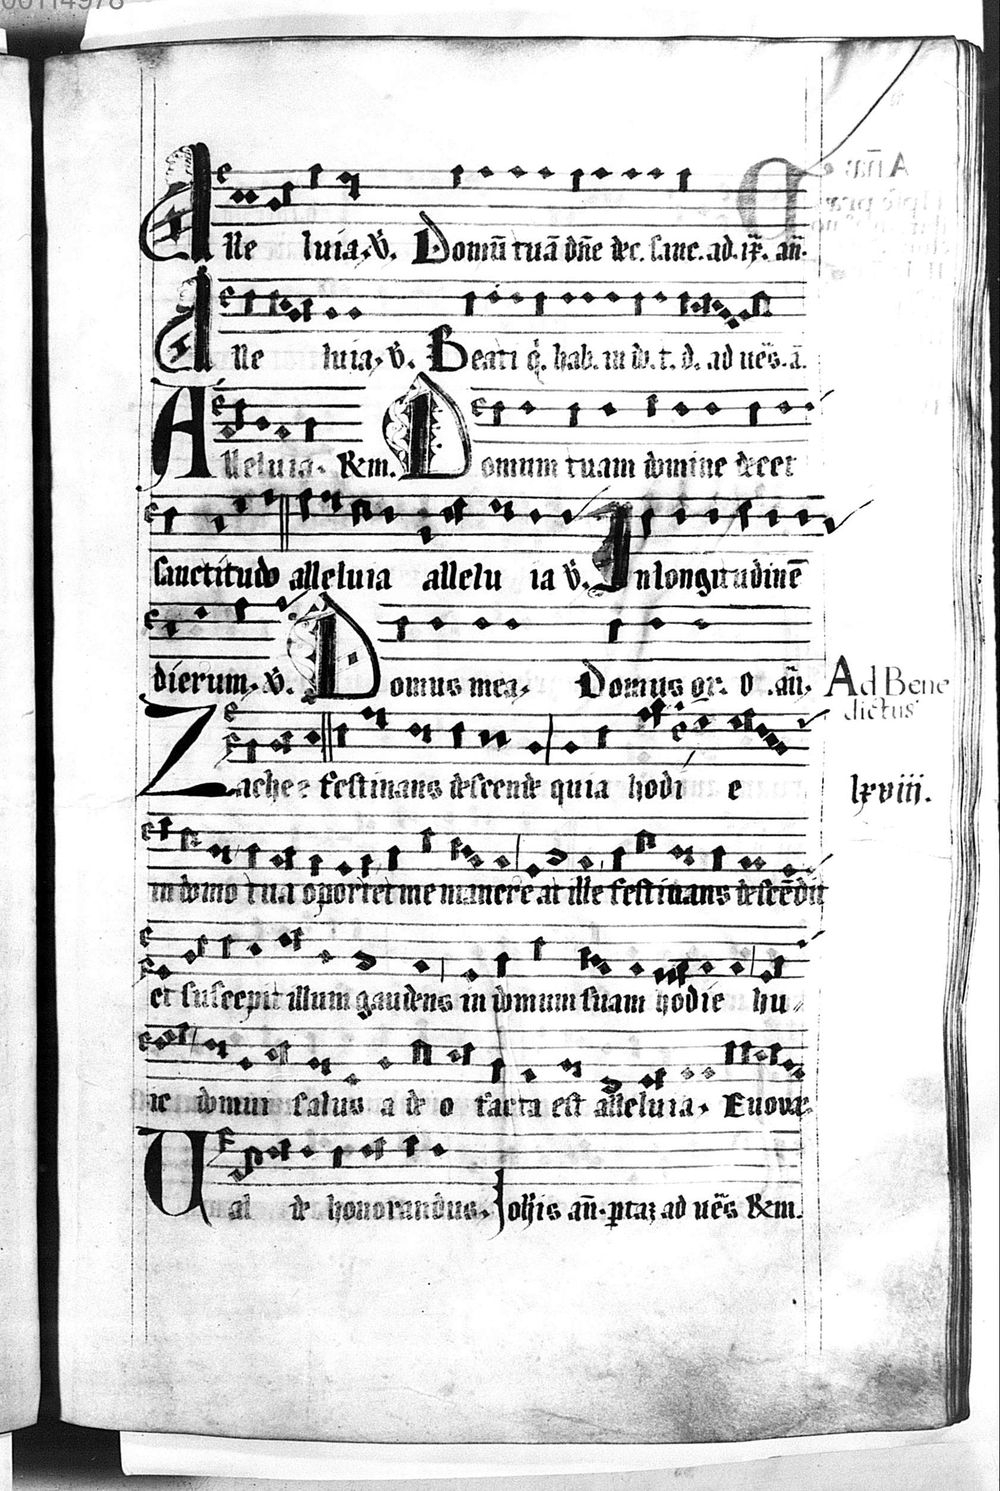 00114978
Alle luia. v̄. Domū tuā dn̄e dec. sanc. ad. ix. an̄.
Alle luia. v̄. Beati q̄. hab. in d. t. d. ad ues̄. a.
Alleluia. R̄m. Domum tuam domine decet
sanctitudo alleluia allelu ia v̄. In longitudinē
dierum. v̄. Domus mea. Domus or. o. an̄. Ad Bene
dictus
Zachee festinans descende quia hodi e lxviii.
in domo tua oportet me manere at ille festinans descēdit
et suscepit illum gaudens in domum suam hodie hu
ic domui salus a de o facta est alleluia. Euouae
Ual de honorandus. ad ues̄ R̄m.